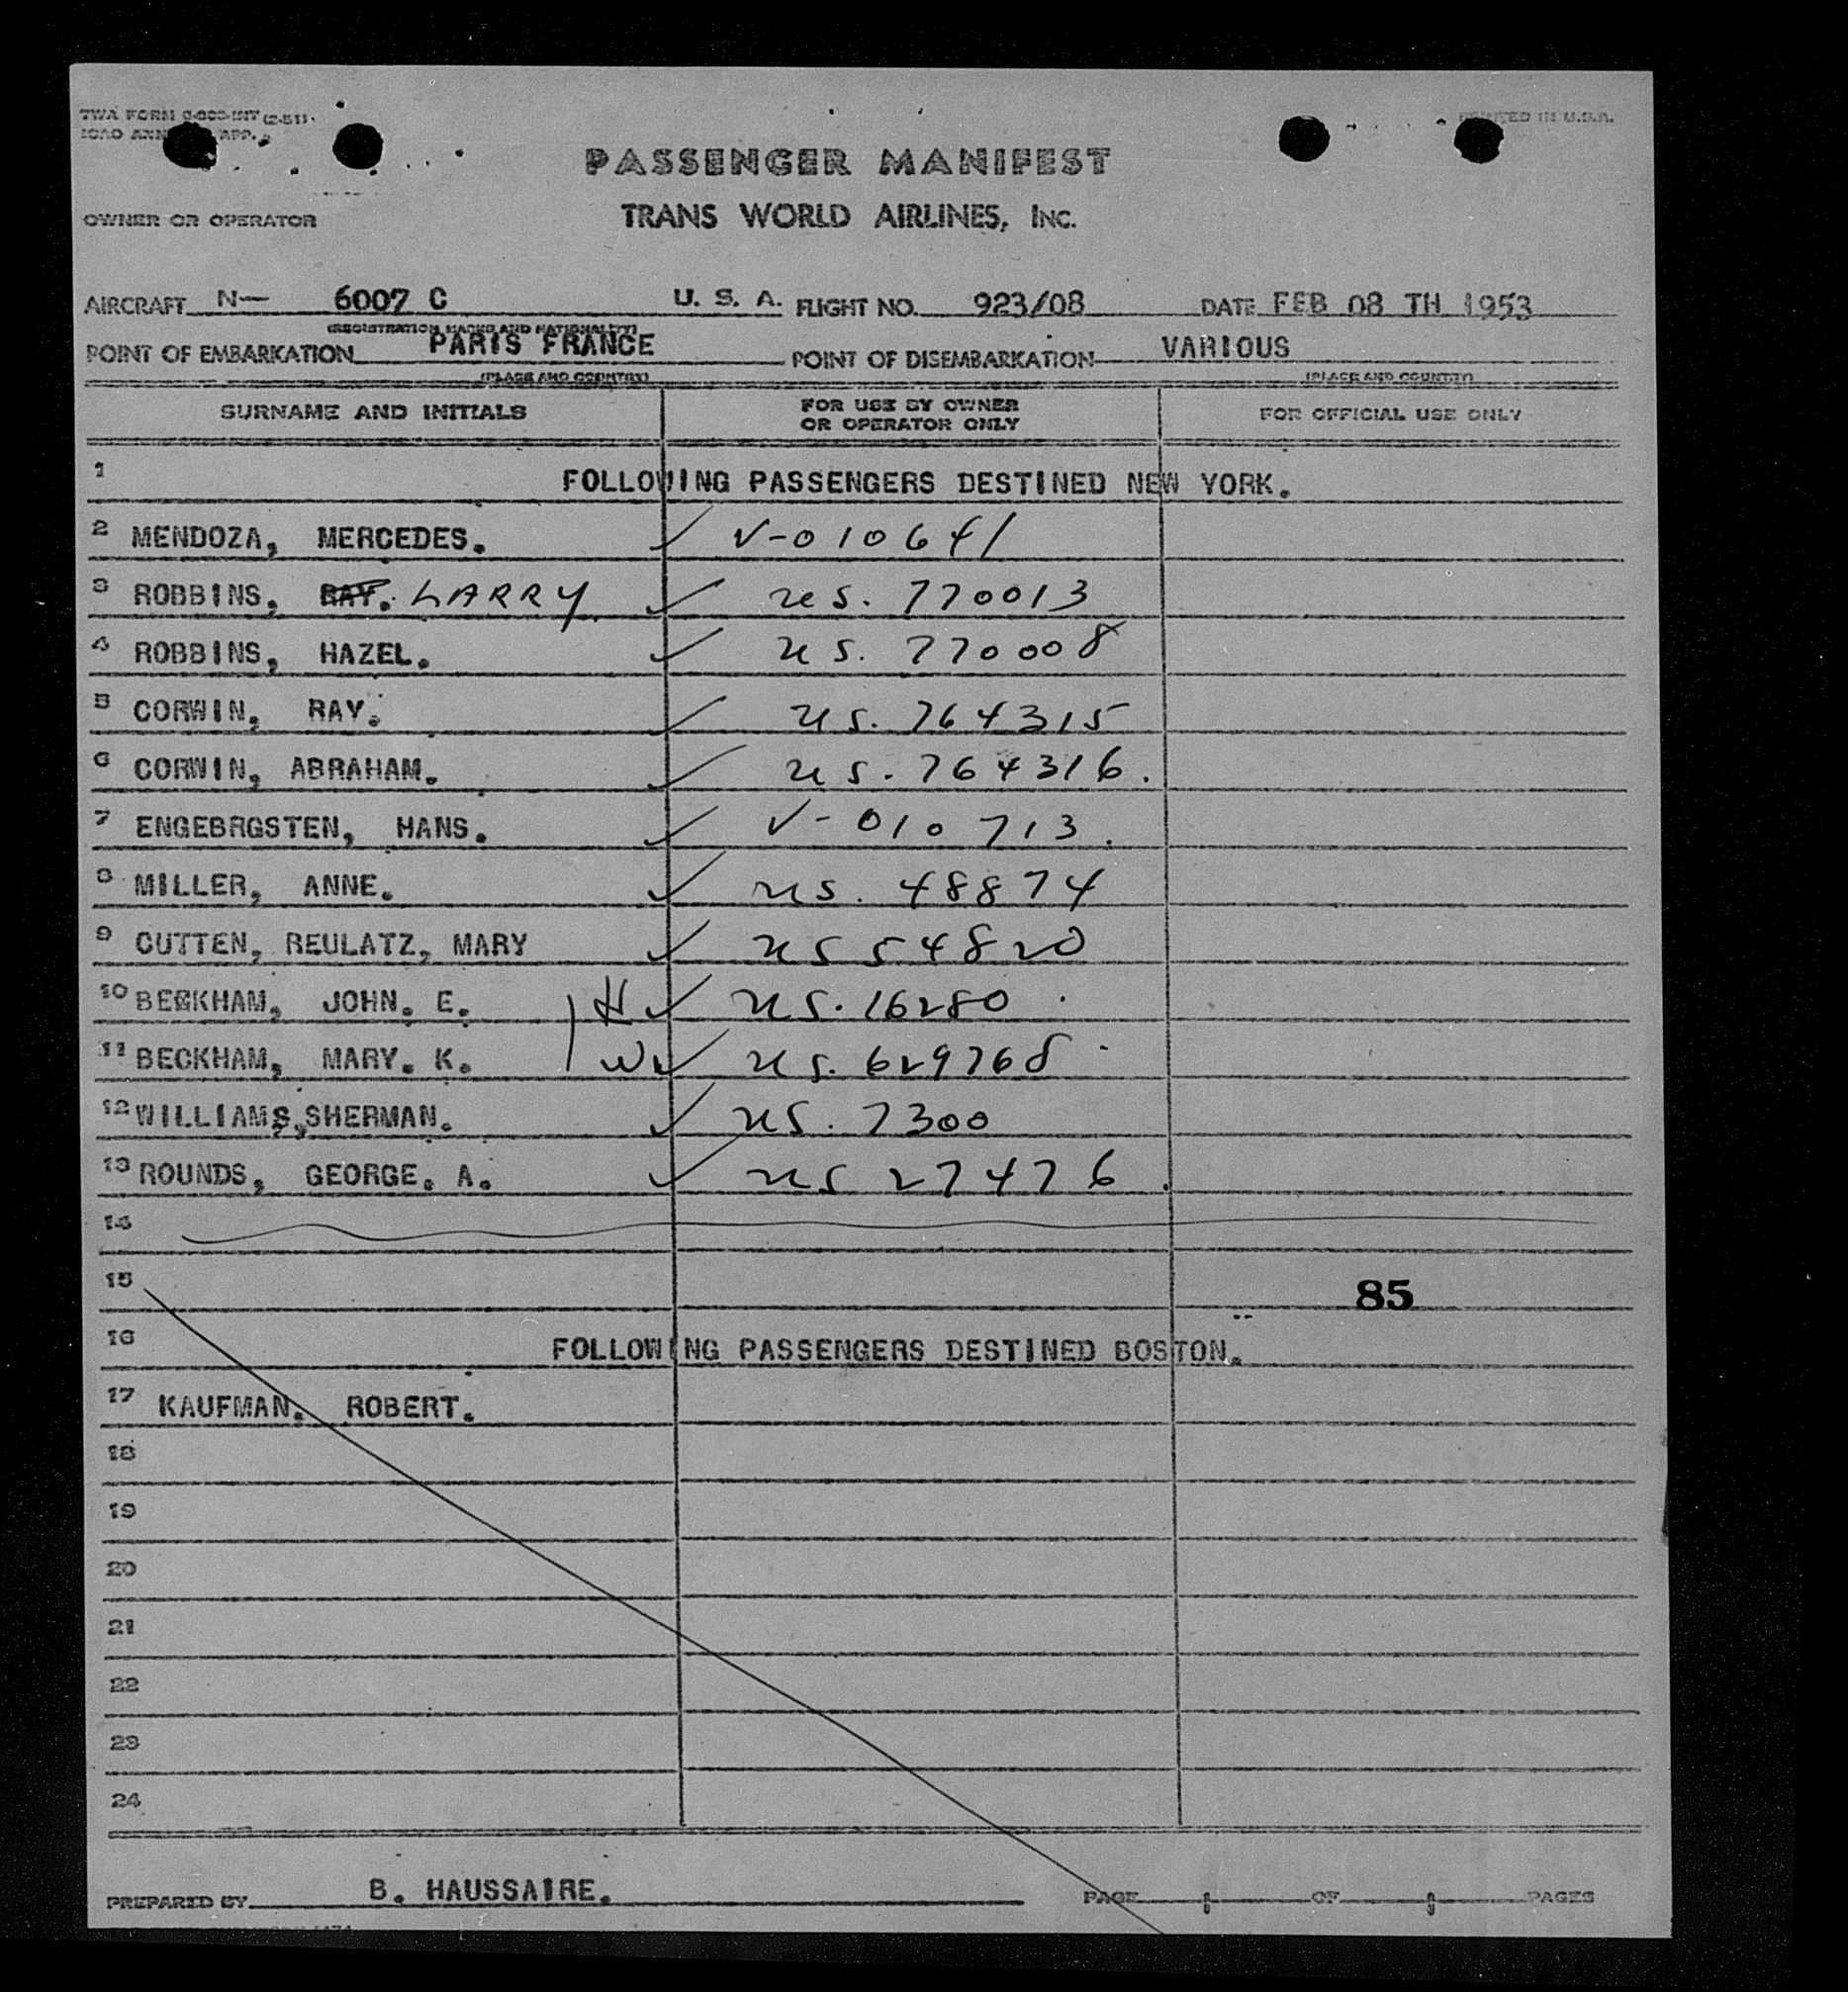 TWA FORM
PRINTED IN U.S.A.
PASSENGER MANIFEST
OWNER OR OPERATOR
TRANS WORLD AIRLINES, INC.
AIRCRAFT N— 6007 C U. S. A. FLIGHT NO. 923/08 DATE FEB 08 TH 1953
(REGISTRATION MARKS AND NATIONALITY)
POINT OF EMBARKATION PARIS FRANCE POINT OF DISEMBARKATION VARIOUS
(PLACE AND COUNTRY) (PLACE AND COUNTRY)
SURNAME AND INITIALS FOR USE BY OWNER OR OPERATOR ONLY FOR OFFICIAL USE ONLY
1 FOLLOWING PASSENGERS DESTINED NEW YORK.
2 MENDOZA, MERCEDES. ✓ V-010641
3 ROBBINS, RAY. LARRY ✓ US. 770013
4 ROBBINS, HAZEL. ✓ US. 770008
5 CORWIN, RAY. ✓ US. 764315
6 CORWIN, ABRAHAM. ✓ US. 764316.
7 ENGEBRGSTEN, HANS. ✓ V-010713.
8 MILLER, ANNE. ✓ US. 48874
9 CUTTEN, REULATZ, MARY ✓ US 54820
10 BECKHAM, JOHN. E. H ✓ US. 16280
11 BECKHAM, MARY. K. W ✓ US. 629768
12 WILLIAMS,SHERMAN. ✓ US. 7300
13 ROUNDS, GEORGE. A. ✓ US 27476.
14
15 85
16 FOLLOWING PASSENGERS DESTINED BOSTON.
17 KAUFMAN, ROBERT.
18
19
20
21
22
23
24
PREPARED BY B. HAUSSAIRE. PAGE OF PAGES